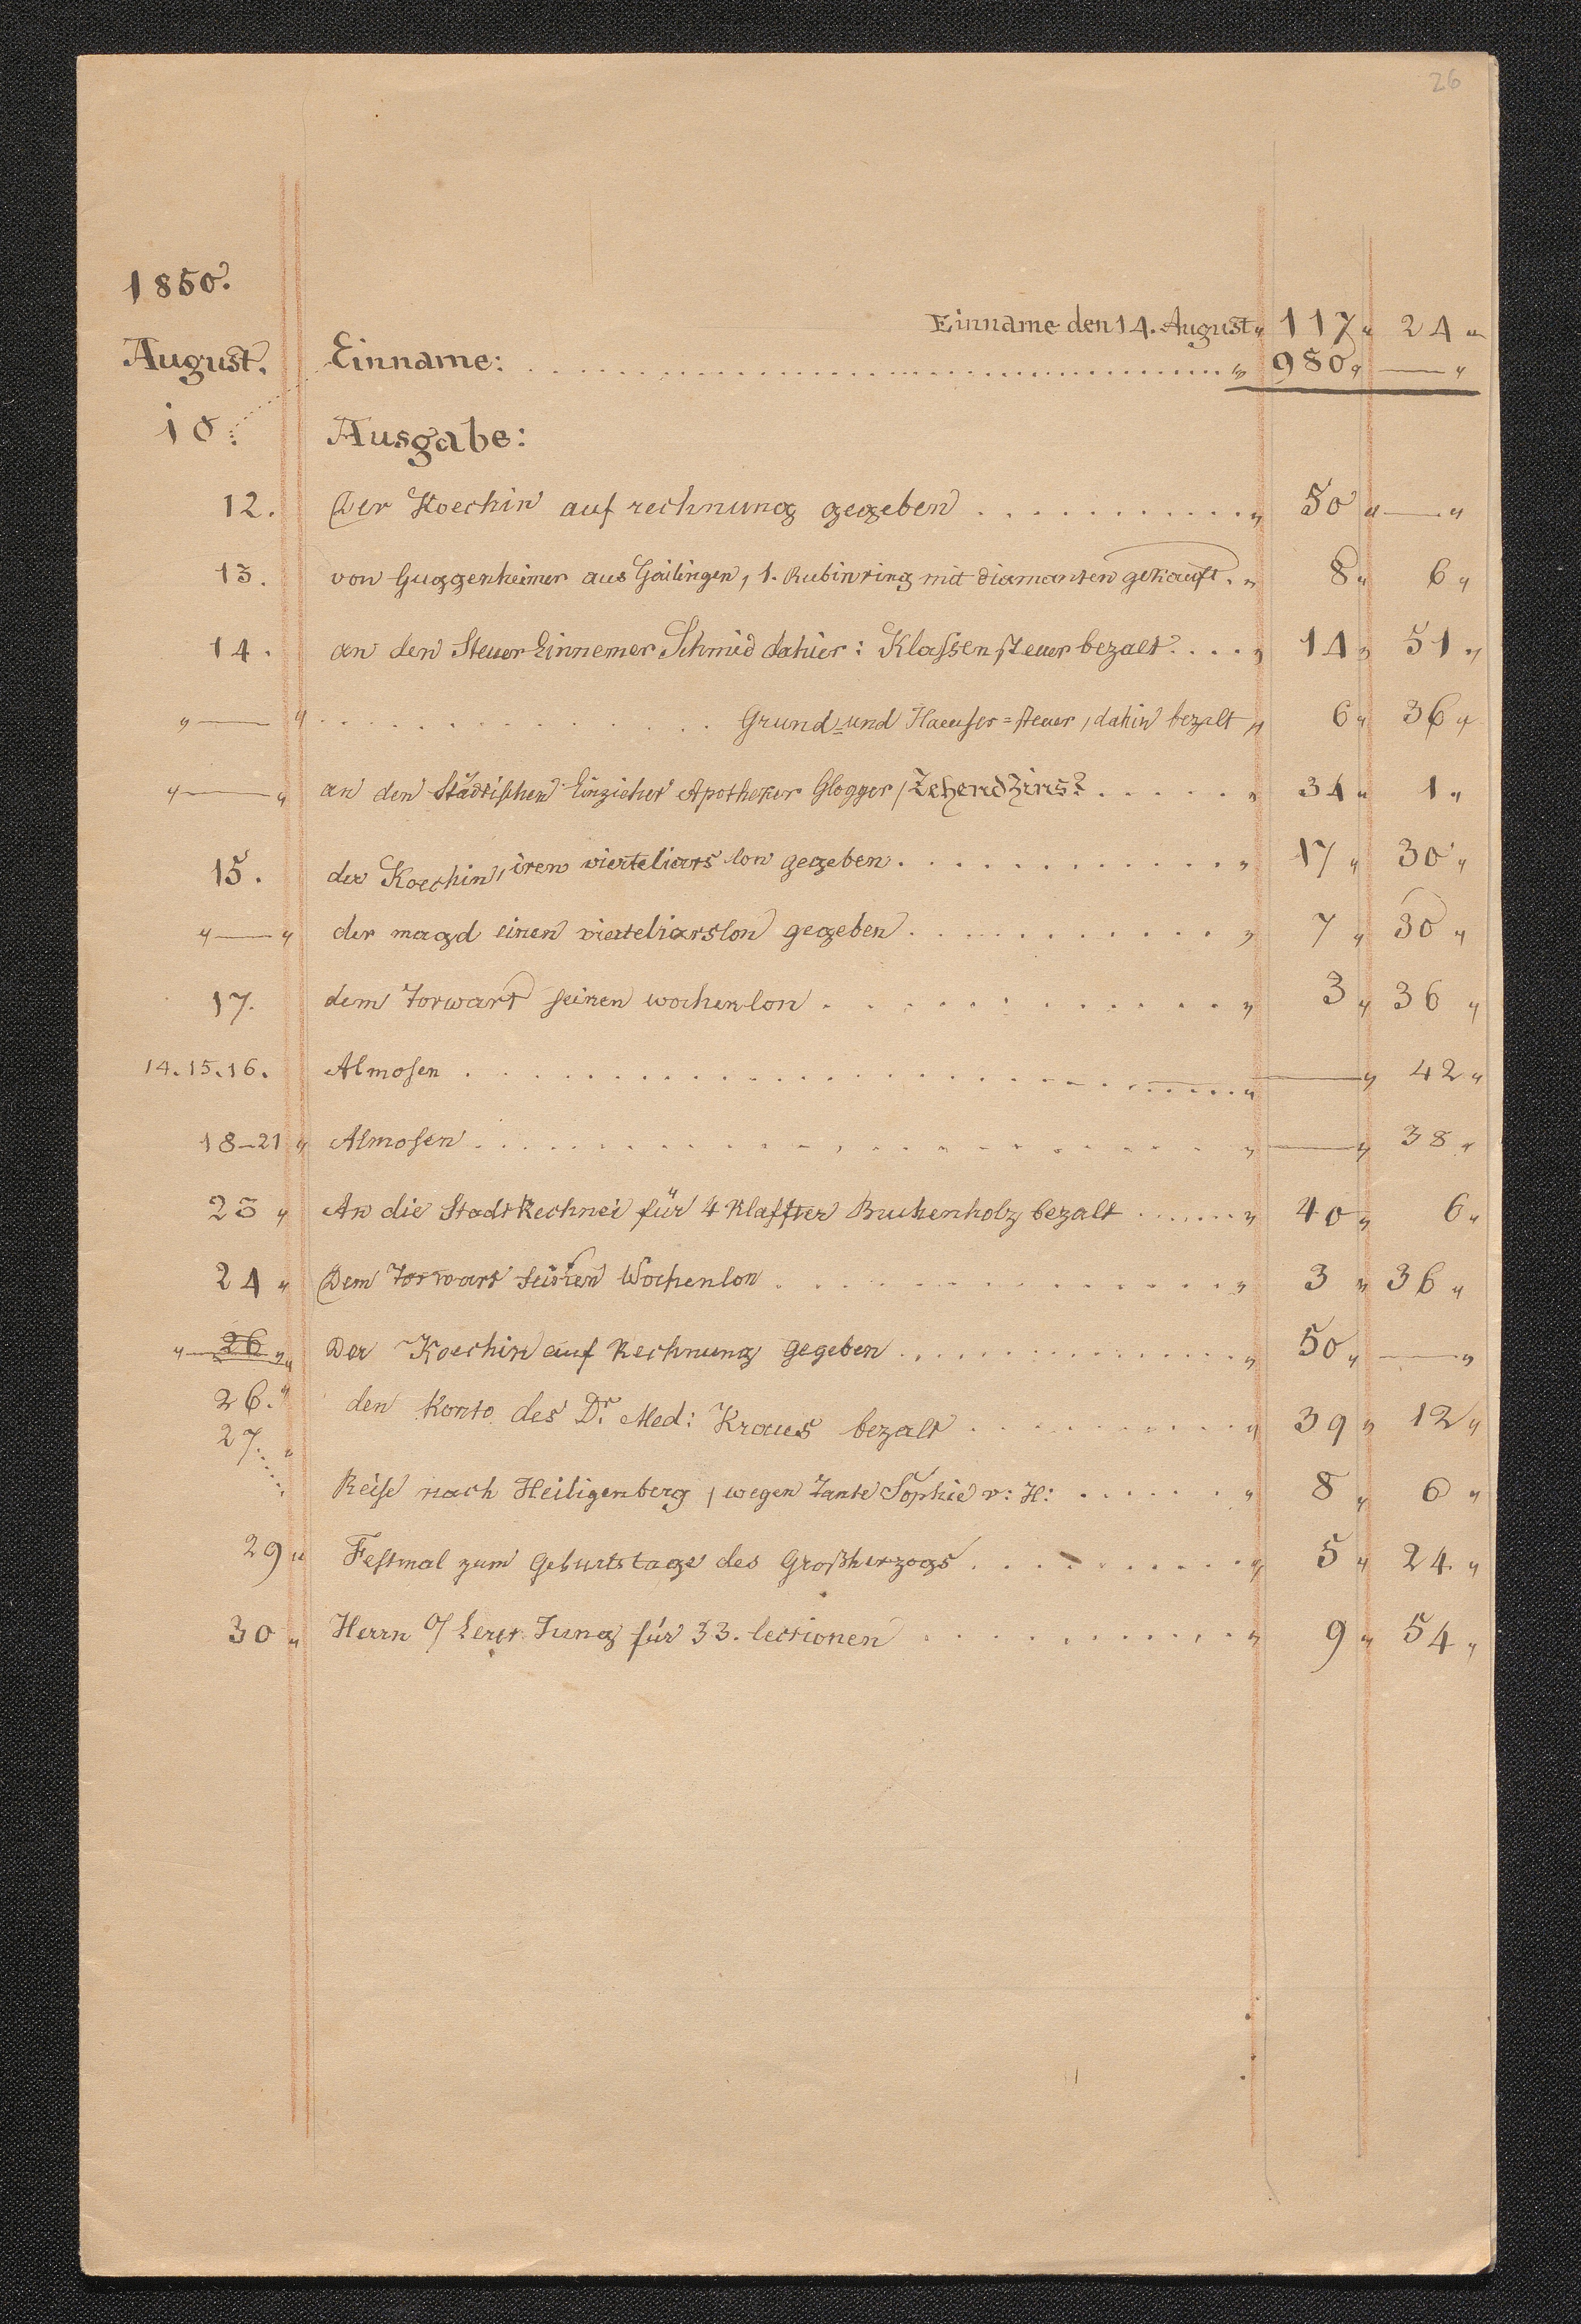 26
1850.
Einname den 14. August „ 117 „ 24 „
August. Einname: . . . . . . . . . . „ 980 „ — „
10. Ausgabe:
12. Der Koechin auf rechnung gegeben . . . . . . . . . . „ 50 „ — „
13. von Guggenheimer aus Gailingen, 1. Rubinring mit diamanten gekauft. „ 8 „ 6 „
14. an den Steuer Einnemer Schmid dahier: Klassensteuer bezalt . . . . „ 14 „ 51 „
„ — „ . . . . . . . . . . Grund- und Haeuser=steuer, dahin bezalt „ 6 „ 36 „
„ — „ an den Städtischen Einzieher Apotheker Glogger, Zehendzins? . . . . . . „ 34 „ 1 „
15. der Koechin, iren vierteliars lon gegeben . . . . . . . . . . „ 17 „ 30 „
„ — „ der magd einen vierteliarslon gegeben . . . . . . . . . . „ 7 „ 30 „
17. dem Torwart seinen wochenlon . . . . . . . . . . „ 3 „ 36 „
14. 15. 16. Almosen . . . . . . . . . . „ — „ 42 „
18–21 „ Almosen . . . . . . . . . . „ — „ 38 „
23 „ An die StadtRechnei für 4 Klaffter Buchenholz bezalt . . . . . . „ 40 „ 6 „
24 „ Dem Torwart seinen Wochenlon . . . . . . . . . . „ 3 „ 36 „
„ — 26 „ Der Koechin auf Rechnung gegeben . . . . . . . . . . „ 50 „ — „
26. „ den Konto des Dr. Med: Kraus bezalt . . . . . . . . . . „ 39 „ 12 „
27. „
Reise nach Heiligenberg, wegen Tante Sophie v: H: . . . . . . „ 8 „ 6 „
29 „ Festmal zum Geburtstage des Großherzogs . . . . . . . . . . „ 5 „ 24 „
30 „ Herrn O/ Lerer Jung für 33. lectionen . . . . . . . . . . „ 9 „ 54 „